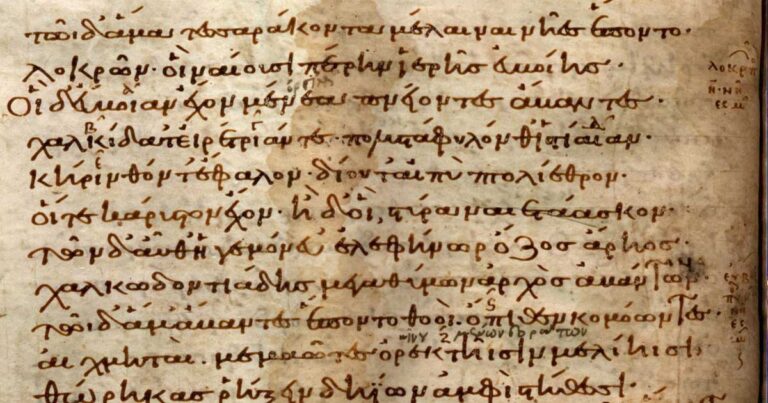 τῶι δ' ἅμα τεσσαράκοντα μέλαιναι νῆες ἕποντο·
λοκρῶν· οἳ ναίουσι πέρην ἱερῆς εὐβοίης·
Οἳ δ' εὔβοιαν ἔχον μένεα πνείοντες ἄβαντες·
χαλκίδα τ' εἰρέτριάν τε· πολυστάφυλόν θ' ἱστίαιαν·
κήρινθόν τ' ἔφαλον· δίου τ' αἰπὺ πτολίεθρον·
οἵ τε κάρυστον ἔχον· ἠδ' οἳ στύρα ναιετάασκον·
τῶν δ' αὖθ' ἡγεμόνευ' ἐλεφήνωρ ὄζος ἄρηος·
χαλκωδοντιάδης μεγαθύμων ἀρχὸς ἀβάντων·
τῶι δ' ἅμ' ἄβαντες ἕποντο θοοὶ· ὄπιθεν κομόωντες·
αἰχμηταὶ· μεμαῶτες ὀρεκτῆισιν μελίηισι
θώρηκας ῥήξειν δηΐων ἀμφὶ στήθεσσι·